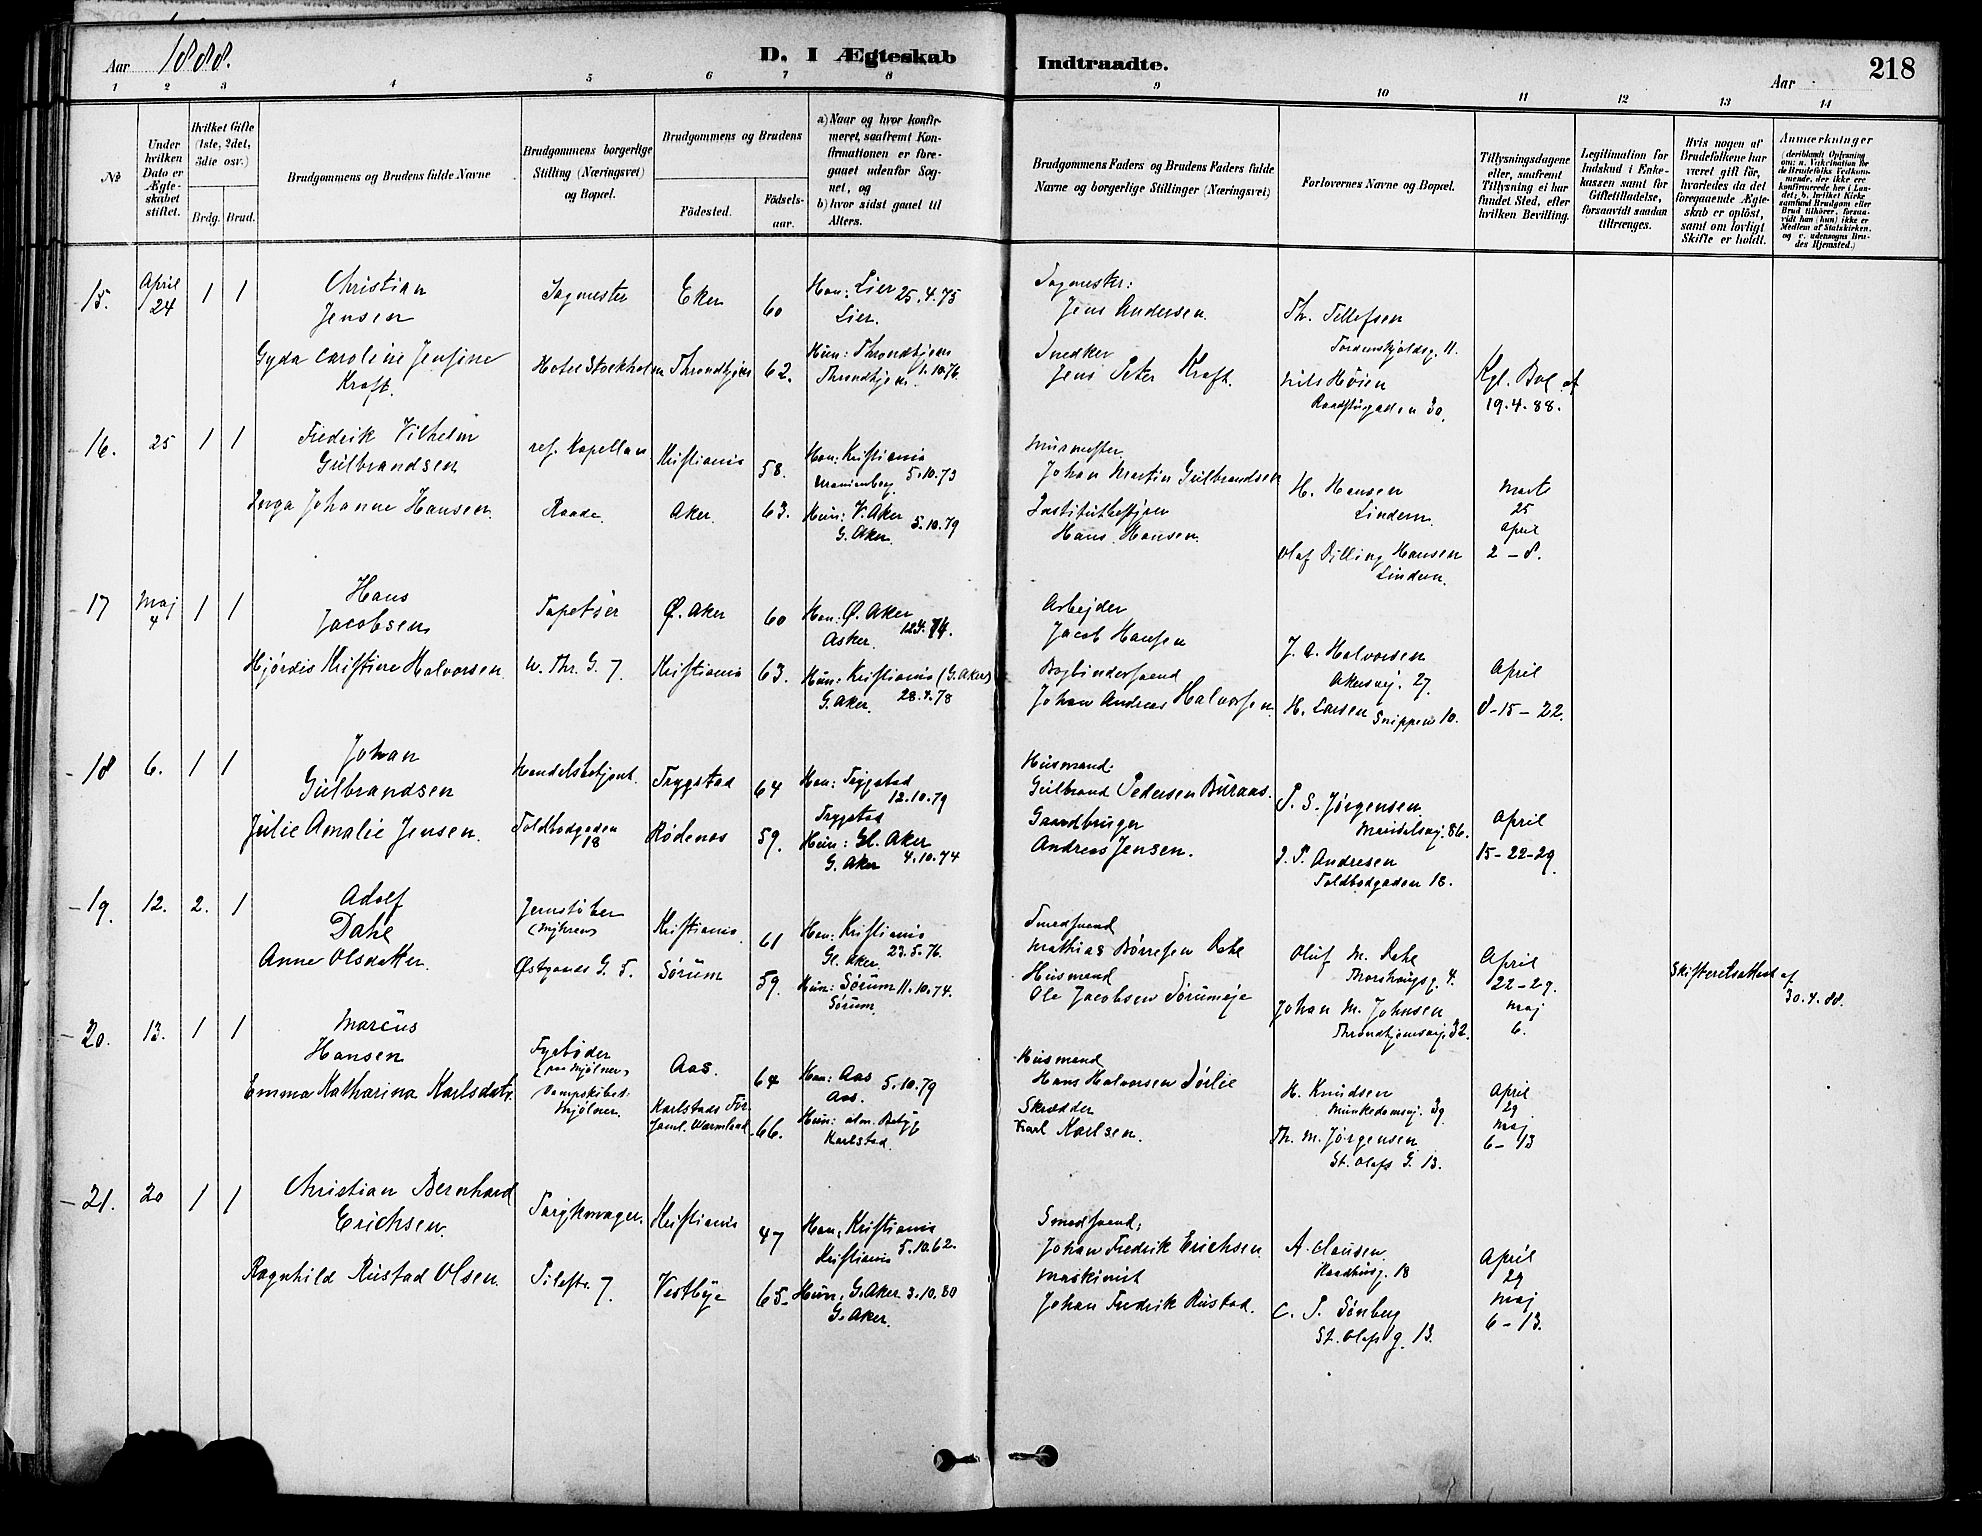 Aar 1888.
D. I Ægteskab
Indtraadte.
Aar
218
1 2 3 4 5 6 7 8 9 10 11 12 13 14
No
Under hvilken Dato er Ægteskabet stiftet.
Hvilket Gifte (1ste, 2det, 3die osv.)
Brdg. Brud.
Brudgommens og Brudens fulde Navne
Brudgommens borgerlige Stilling (Næringsvei) og Bopæl.
Brudgommens og Brudens
Födested.
Födselsaar.
a) Naar og hvor konfirmeret, saafremt Konfirmationen er foregaaet udenfor Sognet, og
b) hvor sidst gaaet til Alters.
Brudgommens Faders og Brudens Faders fulde Navne og borgerlige Stillinger (Næringsvei)
Forlovernes Navne og Bopæl.
Tillysningsdagene eller, saafremt Tillysning ei har fundet Sted, efter hvilken Bevilling.
Legitimation for Indskud i Enkekassen samt for Giftetilladelse, forsaavidt saadan tiltrænges.
Hvis nogen af Brudefolkene har været gift før, hvorledes da det foregaaende Ægteskab er oplöst, samt om lovligt Skifte er holdt.
Anmærkninger
(deriblandt Oplysning om: a. Vakcination for de Brudefolks Vedkommende, der ikke ere konfirmerede her i Landet; b. hvilket Kirkesamfund Brudgom eller Brud tilhörer, forsaavidt han (hun) ikke er Medlem af Statskirken, og c. udensogns Brudes Hjemsted.)
15. April 24 1 1
Christian Jensen
Sagmester
Eker 60
Han: Lier 25.4.75
Lier.
Sagmester:
Jens Andersen.
Th. Tellefsen
Tordenskjoldsg. 11.
Gyda Caroline Jensine Kraft.
Hotel Stockholm
Throndhjem 62.
Hun: Throndhjem 1.10.76.
Throndhjem.
Snedker
Jens Peter Kraft.
Nils Høien
Raadstugaden 30.
Kgl. Bev. af 19.4.88.
16. 25 1 1
Fredrik Vilhelm Gulbrandsen
res. Kapellan
Kristiania 58.
Han: Kristiania 5.10.73
Uranienberg.
Murmester
Johan Martin Gulbrandsen
H. Hansen
Lindern.
Marts 25
Inga Johanne Hansen.
Raade.
Aker. 63.
Hun: V. Aker 5.10.79
G. Aker.
Hans Hansen.
Olaf Dilling Hansen
Lindern.
April 2 - 8.
17 Maj 4 1 1
Hans Jacobsen
Tapetser
Ø. Aker 60
Han: Ø. Aker
Asker.
Arbejder
Jacob Hansen
J. A. Halvorsen
Akersvej. 27.
Hjørdis Kristine Halvorsen
W. Thr. G. 7
Kristiania 63.
Hun: Kristiania (G. Aker)
G. Aker. 28.4.78
Bogbindersvend
Johan Andreas Halvorsen.
H. Larsen Snippen 10.
April
8-15-22.
18 6. 1 1
Johan Gulbrandsen
Handelsbetjent.
Trygstad 64
Han: Trygstad 12.10.79
Trygstad
Husmand.
Gulbrand Pedersen Buraas.
P. S. Jørgensen
Maridalsvej. 86.
Julie Amalie Jensen.
Toldbodgaden 18
Rødenes 59.
Hun: Gl. Aker
G. Aker 4.10.74
Gaardbruger
Andreas Jensen.
J. P. Andresen
Toldbodgaden 18.
April
15-22-29
19. 12. 2. 1
Adolf Dahl
Jernstøber
(Myhrens)
Kristiania 61
Han: Kristiania
Gl. Aker. 23.5.76.
Smedsvend
Mathias Børresen Dahl
Oluf M. Dahl
Thorshaugsg. 4.
April
22-29.
Skifteretsattest af 30.4.88.
Anne Olsdatter.
Østgaards G. 5.
Sørum 59.
Hun: Sørum 11.10.74.
Sørum.
Husmand
Ole Jacobsen Sørumeje
Johan M. Johnsen
Throndhjemsvej. 32.
Maj
6.
20. 13. 1 1
Marcus Hansen
Fyrbøder
(paa Mjølner)
Aas. 64
Han: Aas 5.10.79
Aas.
Husmand
Hans Halvorsen Sørlie
H. Knudsen
Munkedamsvej. 39.
April
29
Emma Katharina Karlsdatr.
Dampskibet Mjølner.
Karlstads For
Jaml. Wærmland. 66.
Hun: alm. Betyg
Karlstad.
Skrædder
Karl Karlsen.
Th. M. Jørgensen
St. Olafs G. 13.
Maj
6-13
21. 20 1 1
Christian Bernhard Erichsen.
Kristiania 47
Han: Kristiania
Kristiania 5.10.62.
Smedsvend;
Johan Fredrik Erichsen.
A. Clausen.
Raadhusg. 18
April
29
Ragnhild Rustad Olsen.
Pilestr. 7.
Vestbye 65-
Hun: G. Aker 3.10.80
G. Aker.
Maskinist
Johan Fredrik Rustad.
C. P. Sønberg
St. Olafs g. 13.
Maj
6-13.